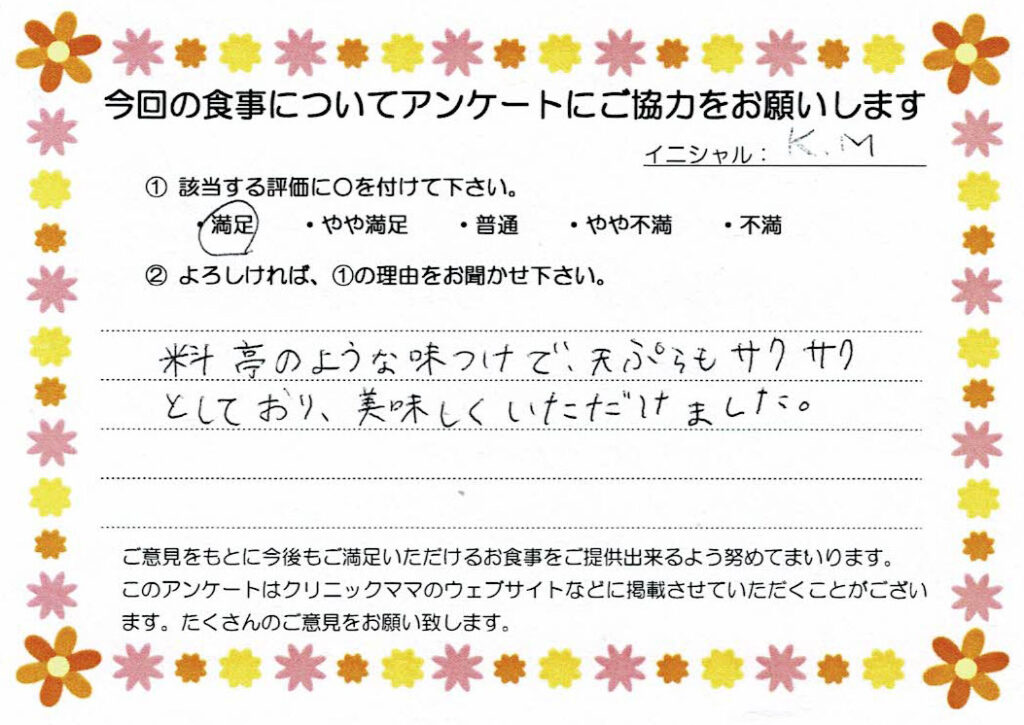 今回の食事についてアンケートにご協力をお願いします
イニシャル： K.M
① 該当する評価に〇を付けて下さい。
・満足 ・やや満足 ・普通 ・やや不満 ・不満
② よろしければ、①の理由をお聞かせ下さい。
料亭のような味つけで、天ぷらもサクサク
としており、美味しくいただけました。
ご意見をもとに今後もご満足いただけるお食事をご提供出来るよう努めてまいります。
このアンケートはクリニックママのウェブサイトなどに掲載させていただくことがござい
ます。たくさんのご意見をお願い致します。